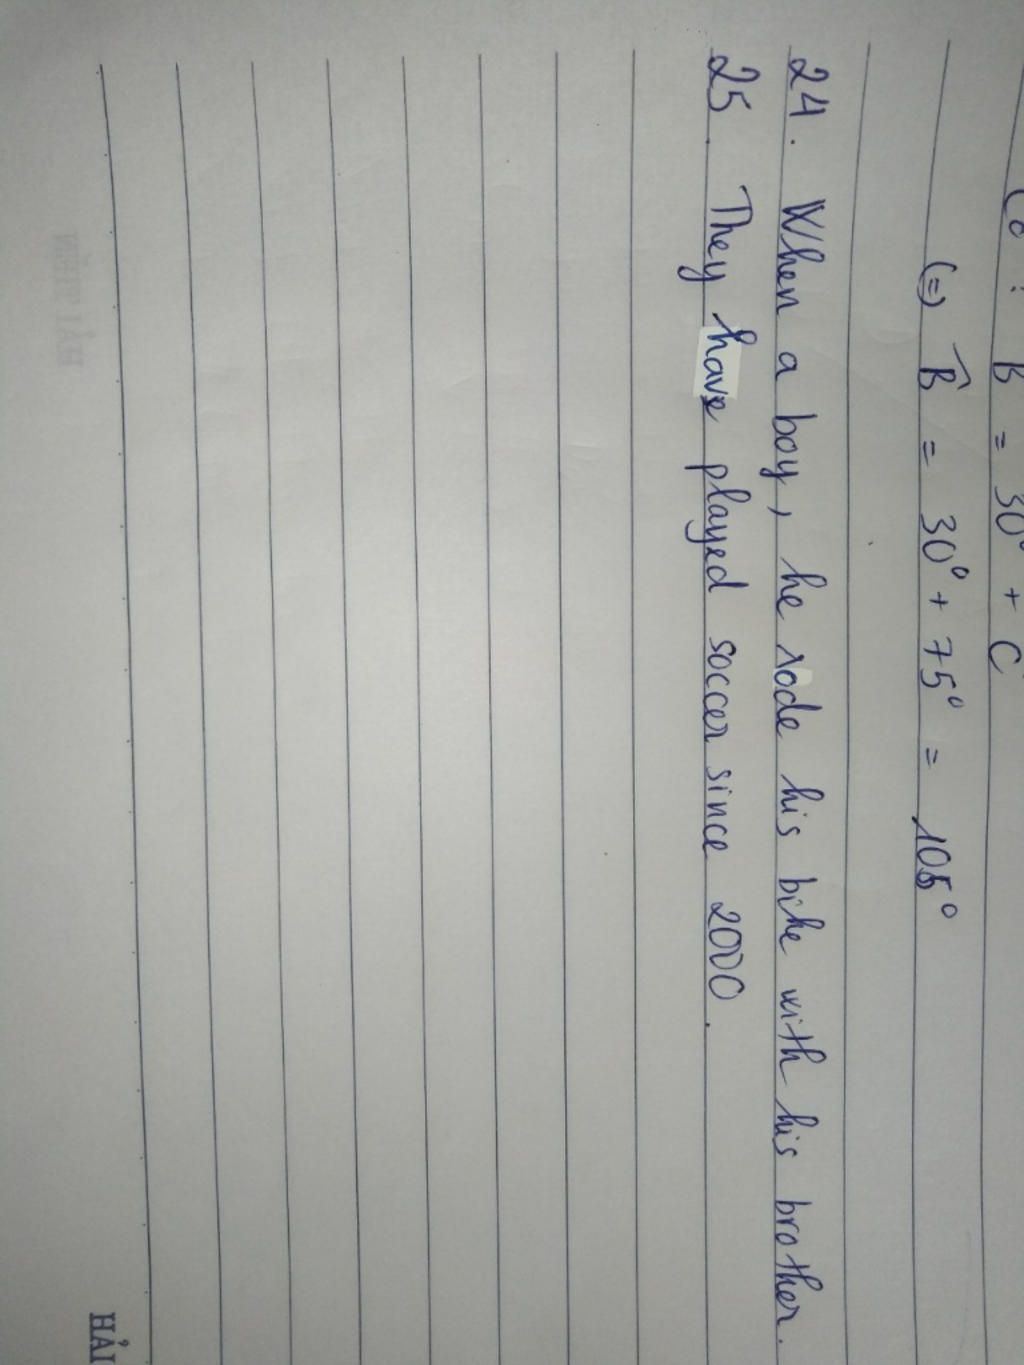 Có : B = 30° + C
(=) B̂ = 30° + 75° = 105°
24. When a boy, he rode his bike with his brother.
25. They have played soccer since 2000.
HẢI